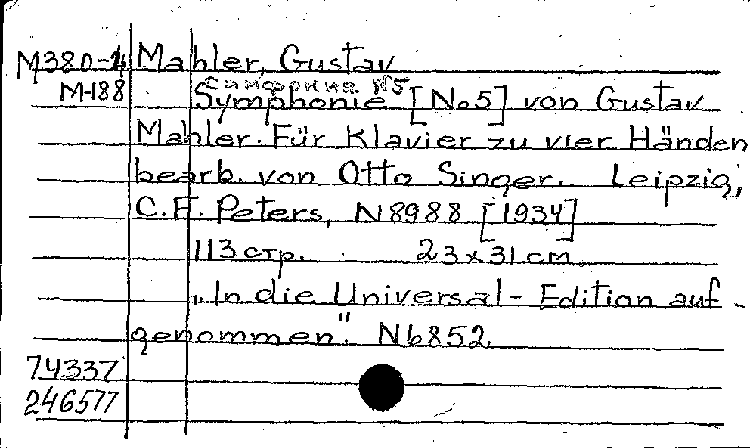 M380-4 Mahler, Gustav
Симфония №5
M-188 Symphonie [No5] von Gustav
Mahler. Für Klavier zu vier Händen
bearb. von Otto Singer. Leipzig,
C. F. Peters, N8988 [1934]
113 стр. 23x31 cm
„In die Universal-Edition auf-
genommen". N6852.
74337
246577